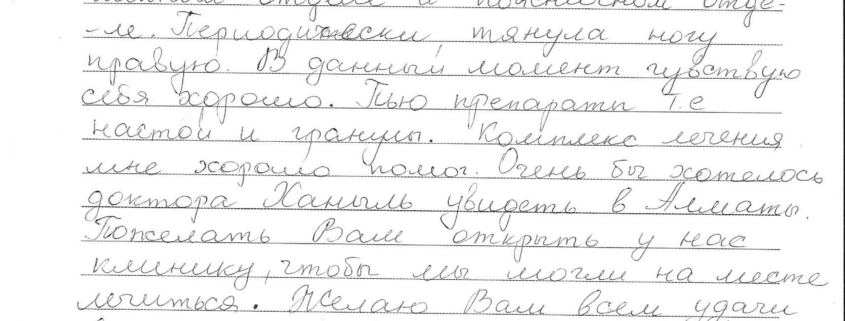 отделе и поясничном отде-
-ле. Периодически тянула ногу
правую. В данный момент чувствую
себя хорошо. Пью препараты т.е
настои и гранулы. Комплекс лечения
мне хорошо помог. Очень бы хотелось
доктора Ханыль увидеть в Алматы.
Пожелать Вам открыть у нас
клинику, чтобы мы могли на месте
лечиться. Желаю Вам всем удачи